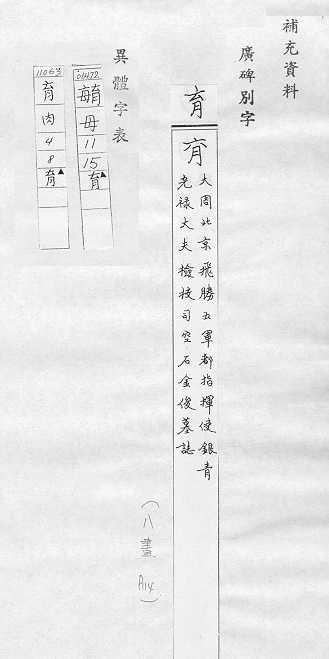 補充資料
廣碑別字
育
大周北京飛勝五軍都指揮使銀青
光祿大夫檢校司空石金俊墓誌
(八畫 A14)
異體字表
01472
毓
毋
11
15
育▲
11063
育
肉
4
8
育▲